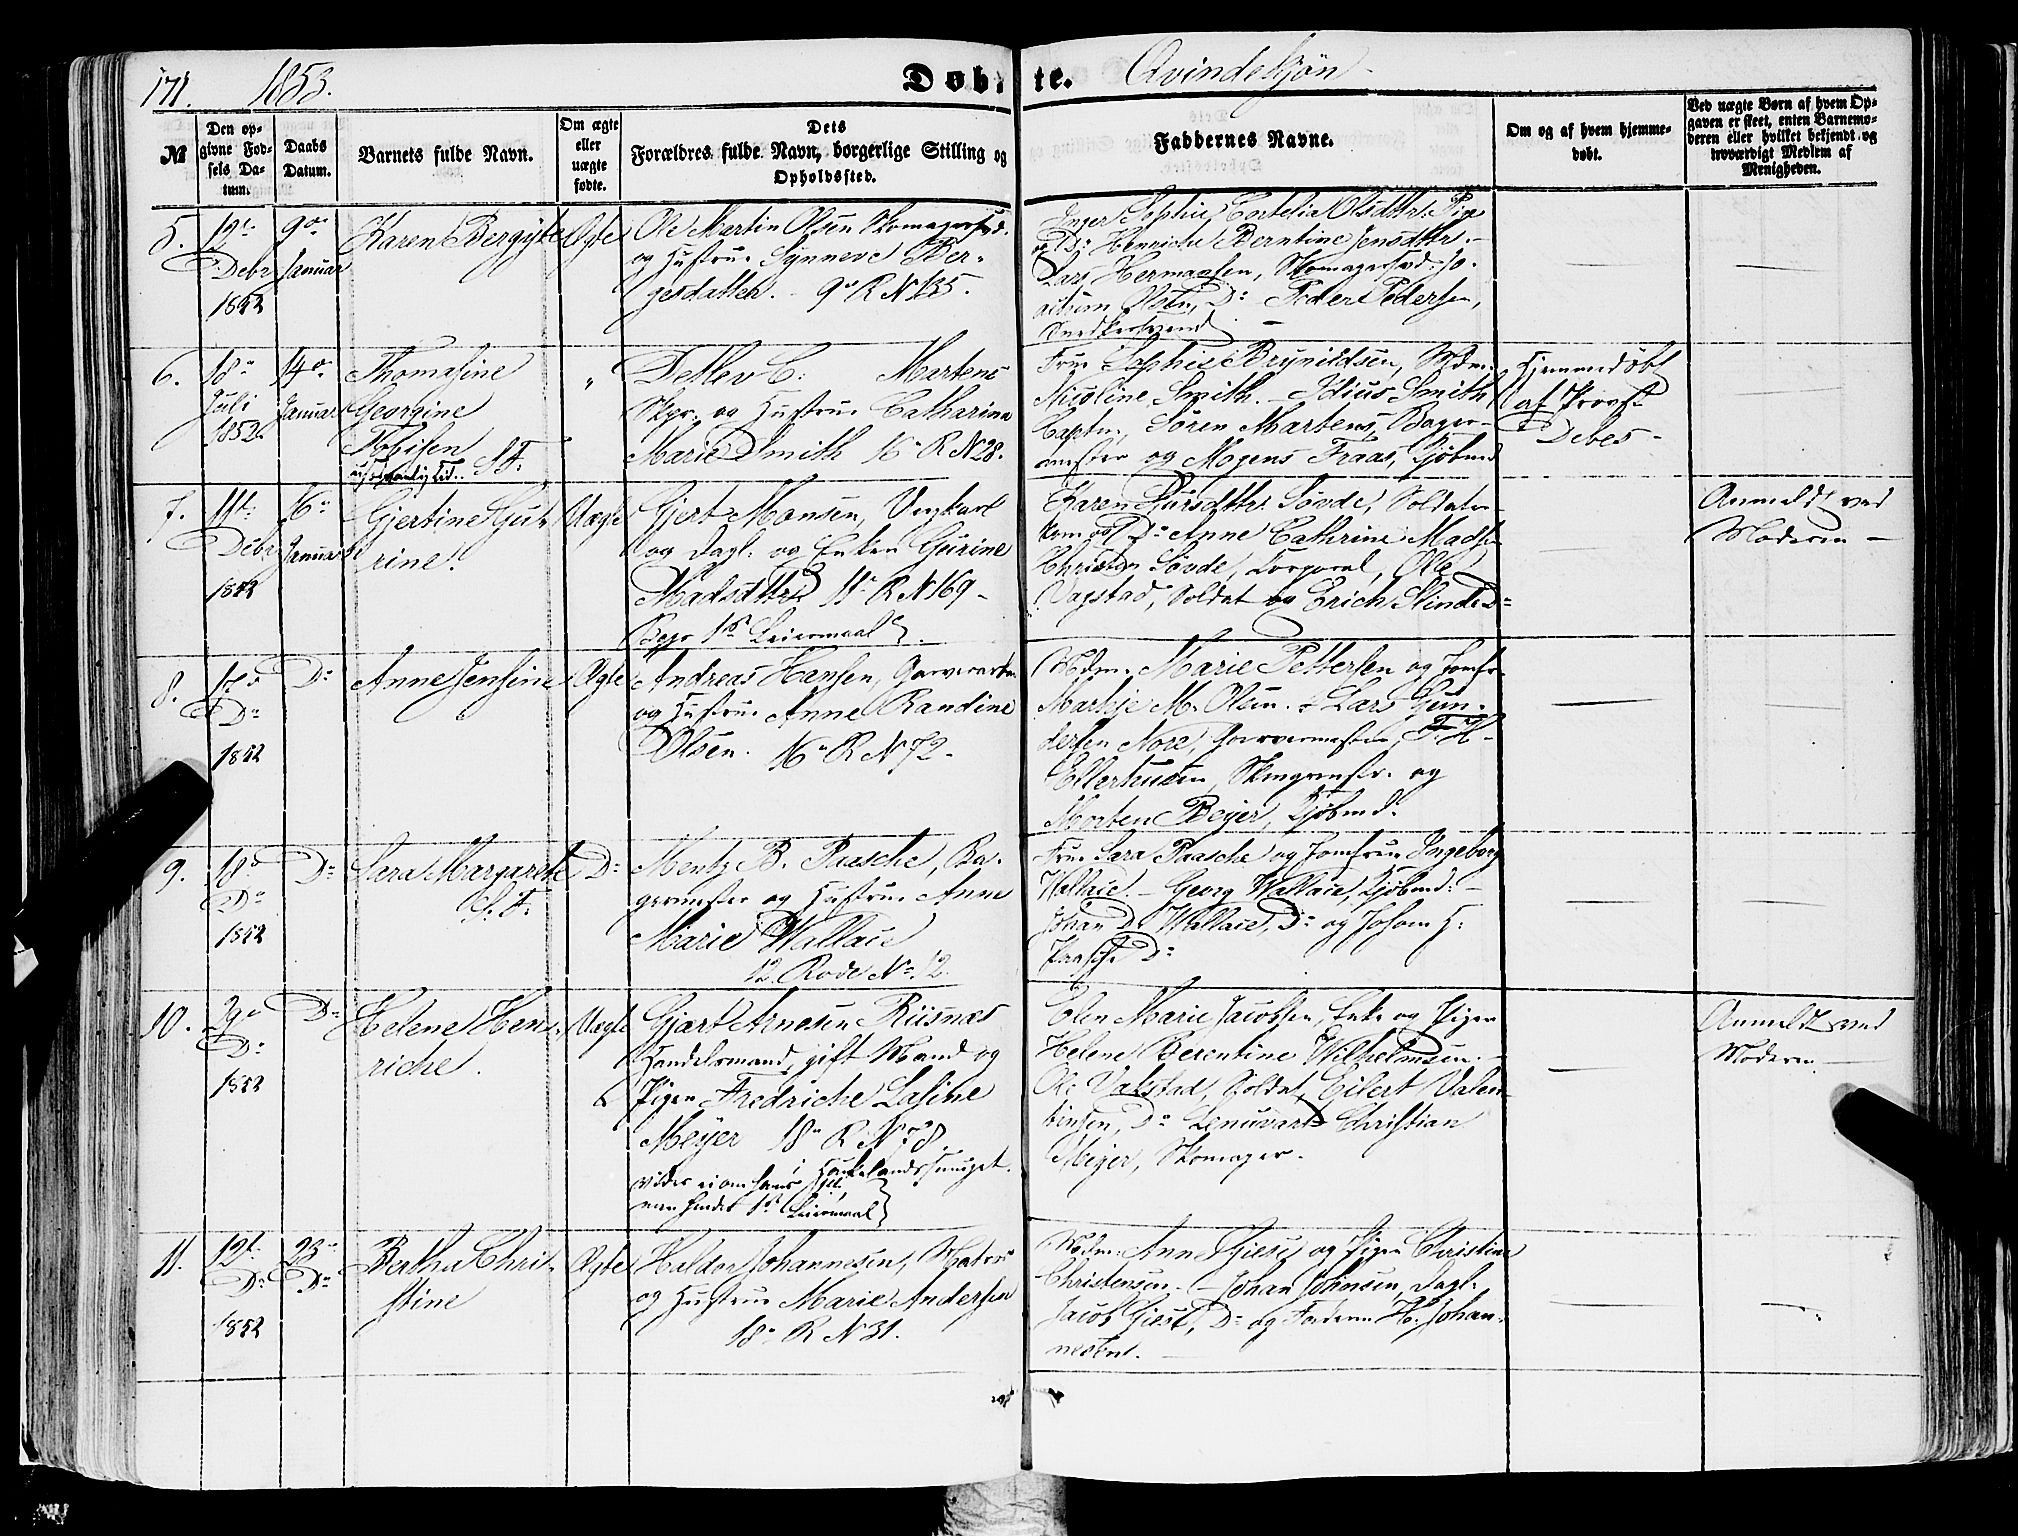 171. 1853. Døbte. Qvindekjøn
№
Den opgivne Fødsels Datum.
Daabs Datum.
Barnets fulde Navn.
Om ægte eller uægte fødte.
Dets Forældres fulde Navn, borgerlige Stilling og Opholdssted.
Faddernes Navne.
Om og af hvem hjemmedøbt.
Ved uægte Børn af hvem Opgaven er skeet, enten Barnemoderen eller hvilket bekjendt og troværdigt Medlem af Menigheden.
5.
12te Debr 1852
9de Januar
Karen Bergitte
Ægte
Ole Martin Olsen Skomagersvd.
og Hustrue Synneve Ber-
gesdatter. 9de R N 135.
Inger Sophie Cortelia Olsdttr. Pige
og Do Henriche Berntine Jensdttr. -
Lars Hermansen, Skomagersvd: Jo-
achim Olsen, Do Peder Pedersen,
Snedkersvend
6.
18de Juli 1852
14de Januar
Thomasine
Georgine
Tobisen
S F.
"
Detlev C. Martens
Skpr. og Hustrue Catharina
Marie Smith 16de R N 28.
Frue Sophie Brynildsen, Mdm.
Nicoline Smith. - Idius Smith
Captn, Sören Martens, Bager-
mester og Mogens Fraas, Kjöbmd
Hjemmedöbt
af Provst
Debes -
7.
11te Debr 1852
16de Januar
Gjertine Gu-
rine!
Uægte
Gjert Monsen, Ungkarl
og Dagl: og Enken Gurine
Madsdttr 11te R N 169 -
Begges 1ste Leiermaal
Karen Larsdttr Sövde, Soldater-
kone og Do Anne Cathrine Mads
Christen Sövde, Corporal, Ole
Vagstad, Soldat og Erich Slinde Do
Anmeldt ved
Moderen -
8.
Do 1852
Do
Anne Jensine
Ægte
Andreas Hansen, Garver
og Hustrue Anne Randine
Olsen. 16de R N 72 -
Mdm. Marie Pettersen og Jomfr.
Martje M. Olsen. - Lars Gun-
dersen Nore, Garvermester, F. H.
Ellerhusen, og
Morten Beyer, Kjöbmd.
9.
18de Do 1852
Do
Sara Margarethe
S. F.
Do
Mentz B. Paasche, Ba-
germester og Hustrue Anne
Marie Wallace
12. Rode No. 12.
Frue Sara Paasche og Jomfrue Ingeborg
Wallace. - Georg Wallace, Kjöbmd: -
Johan D. Wallace, Do og Johan H.
Paasche Do
10.
29de Do 1852
Do
Helene Hen-
riche.
Uægte
Gjert Arnesen Riisnæs
Handelsmand, gift Mand og
Pigen Fredriche Lasine
Meyer 18de R N 78.
men hendes 1ste Leiermaal
Elen Marie Jacobsen, Enke og Pigen
Helene Berentine Wilhelmsen. -
Ole Vakstad, Soldat, Eilert Valen-
tinsen, Do Christian
Meyer, Skomager.
Anmeldt ved
Moderen -
11.
12te Do 1852
23de Do
Bertha Chri-
stine
Ægte
Haldor Johannesen, Matros
og Hustrue Marie Andersen
18de R N 31.
Mdm. Anne Giese og Pigen Christine
Christensen. - Johan Johnsen, Dagl:
Jacob Giese, Do og Faderen H. Johan-
nesen. -